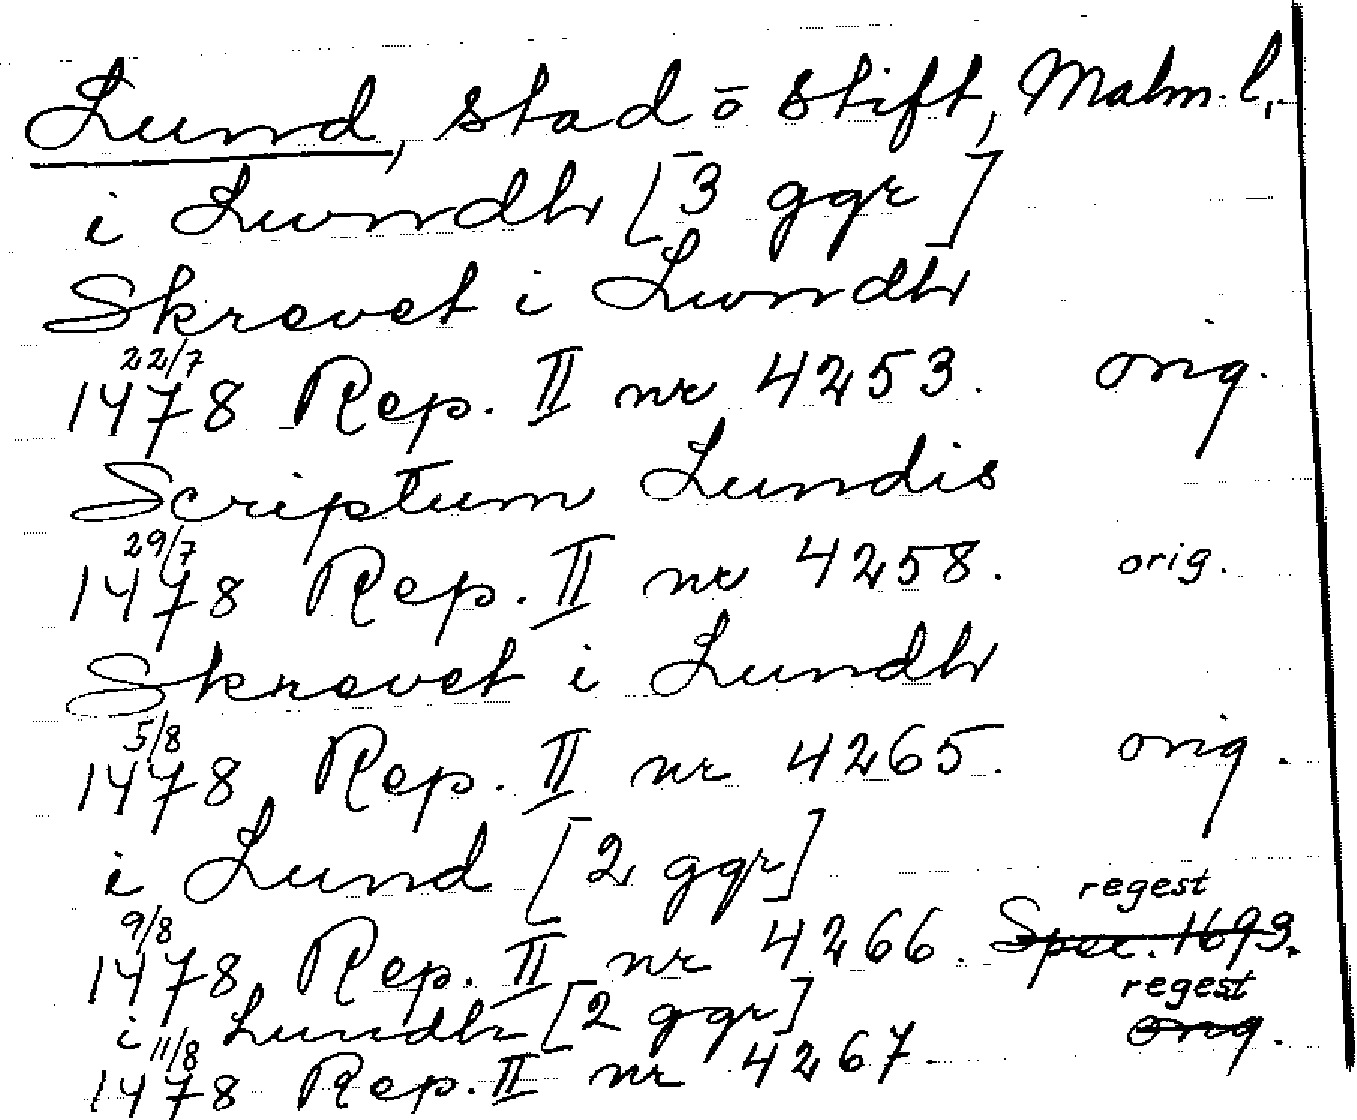 Lund, stad o stift, Malm. l.
i Lwndh [3 ggr]
Skrevet i Lwndh
22/7
1478 Rep. II nr 4253. orig.
Scriptum Lundis
29/7
1478 Rep. II nr 4258. orig.
Skrevet i Lundh
5/8
1478 Rep. II nr 4265. orig.
i Lund [2 ggr]
regest
9/8
1478 Rep. II nr 4266. Spec. 1693.
regest
i Lundh [2 ggr] orig.
11/8
1478 Rep. II nr 4267.